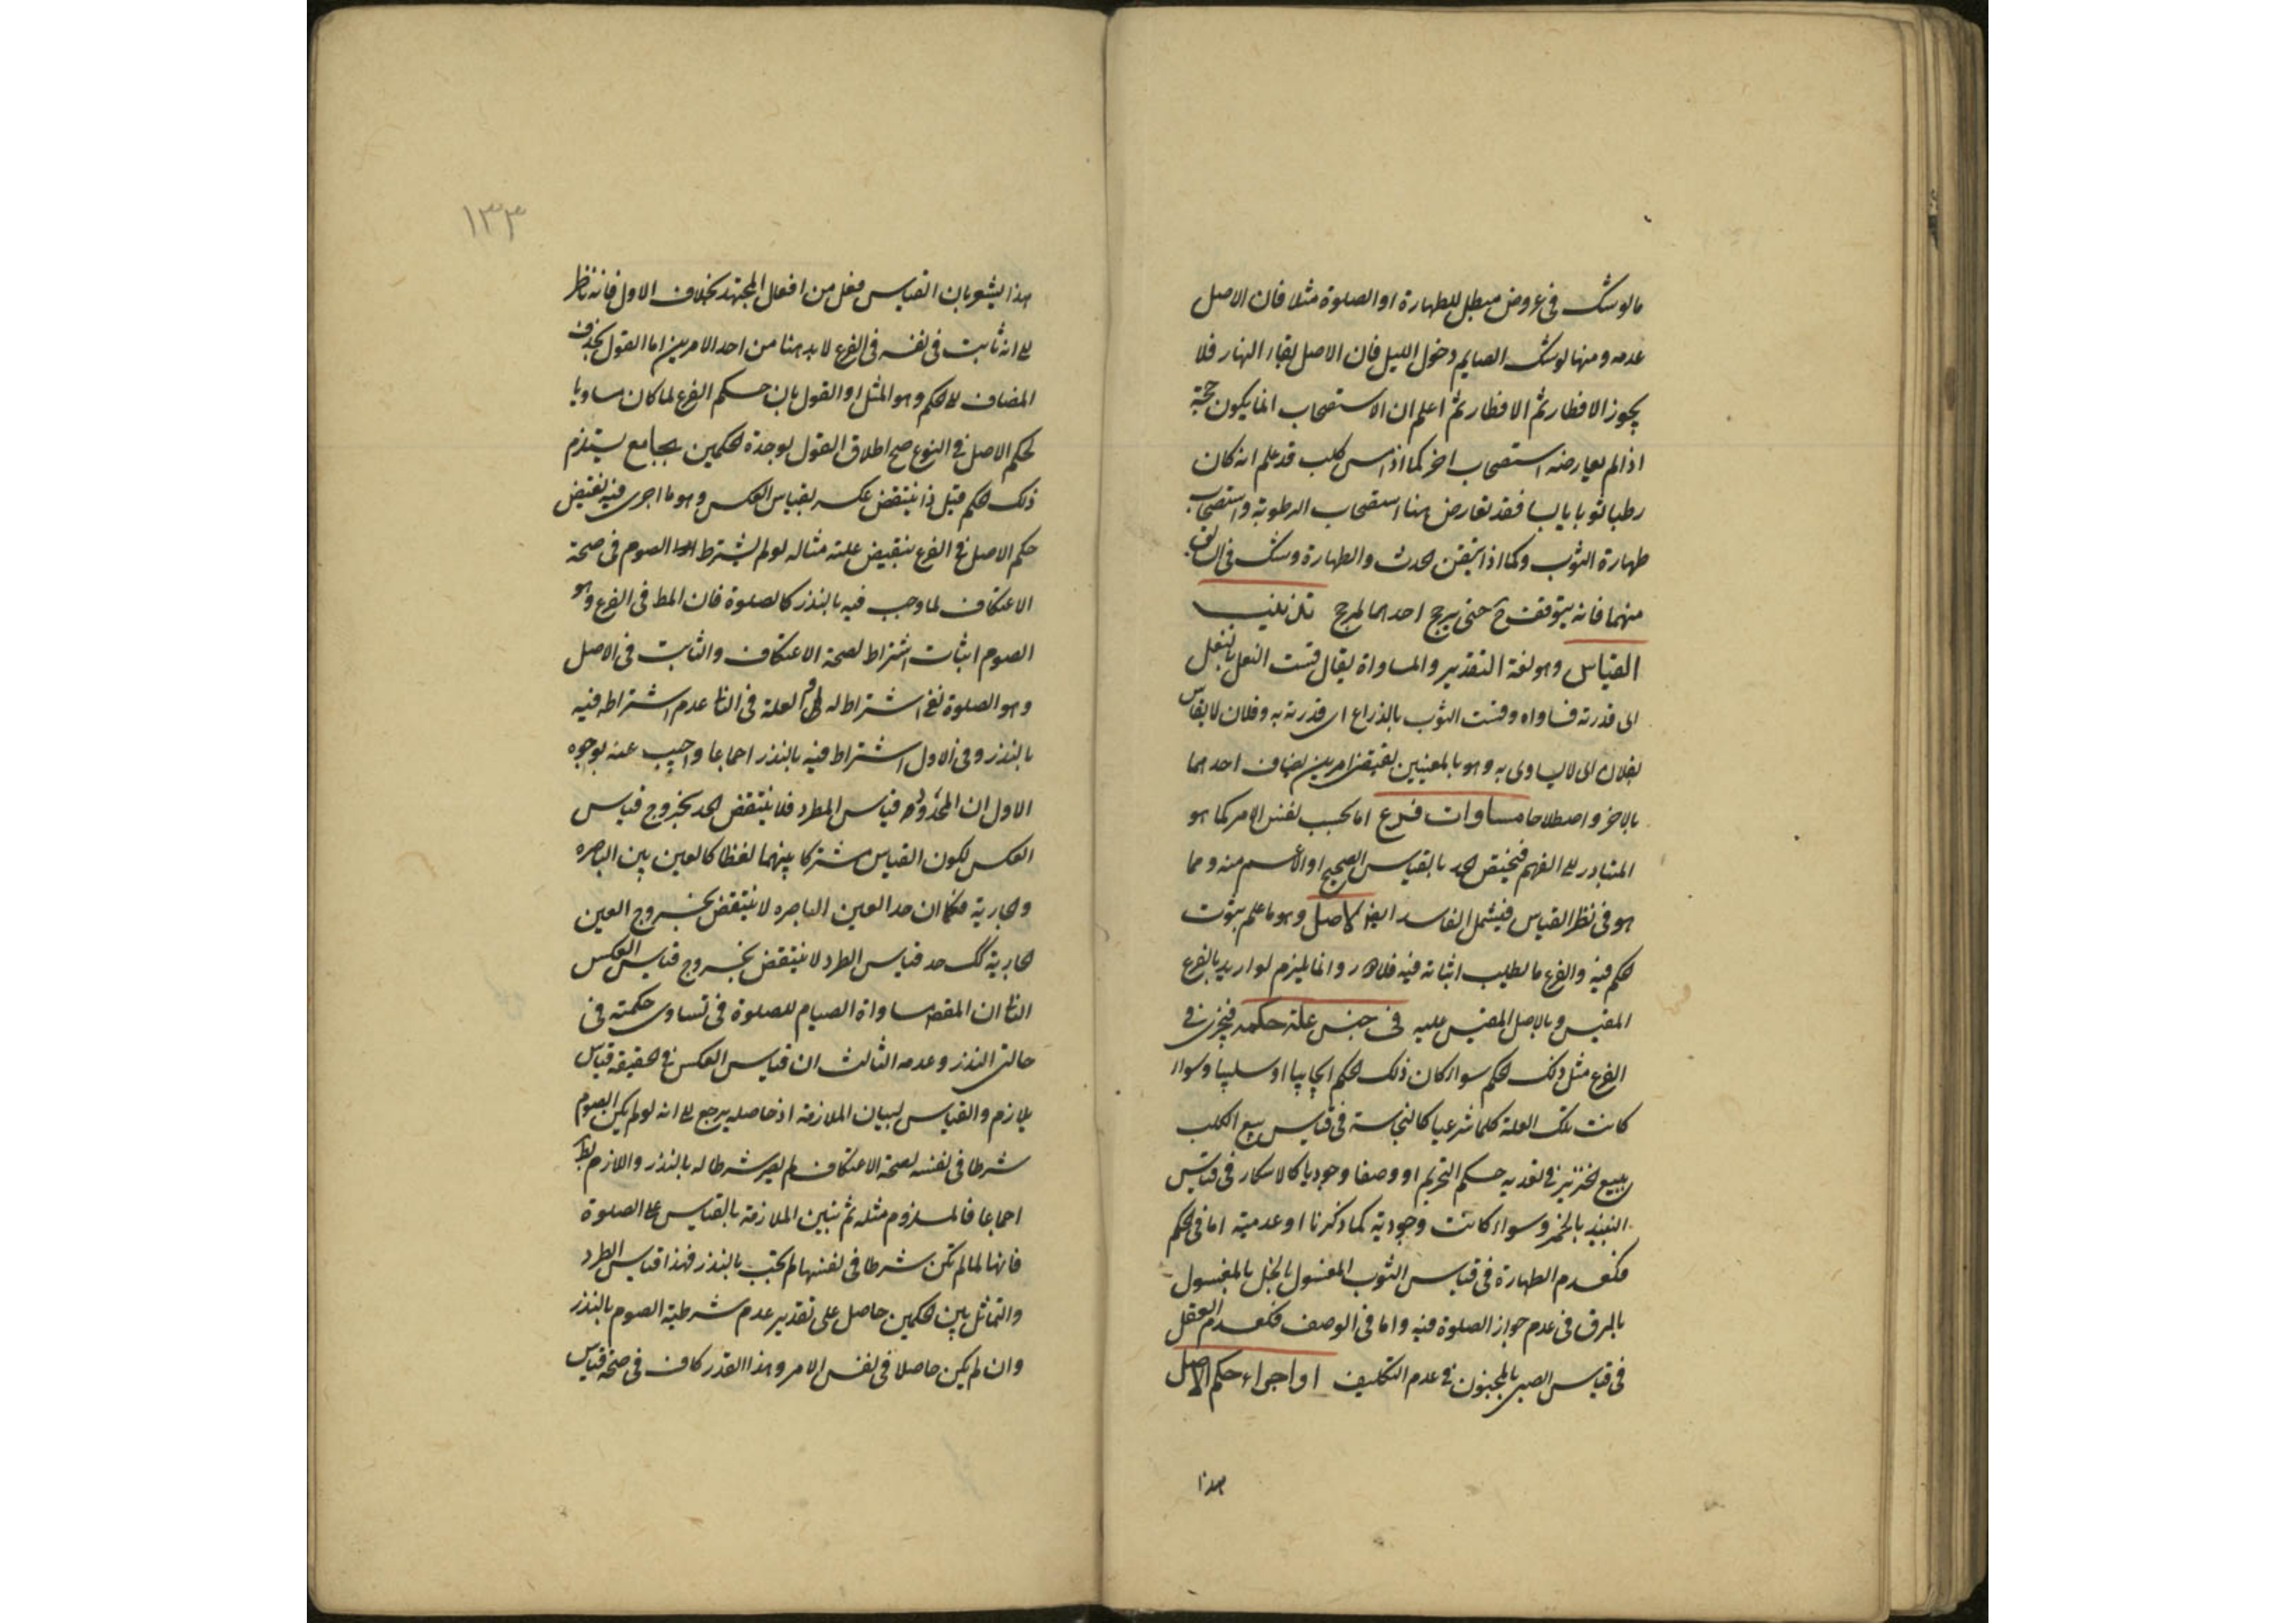 ما لو شك فى عروض مبطل للطهارة او الصلوة مثلا فان الاصل
عدمه ومنها لو شك الصايم دخول الليل فان الاصل بقاء النهار فلا
يجوز الافطار ثم الافطار ثم اعلم ان الاستصحاب انما يكون حجة
اذا لم يعارضه استصحاب اخر كما اذا مس كلب قد علم انه كان
رطبا ثوبا يابسا فقد تعارض هنا استصحاب الرطوبة واستصحاب
طهارة الثوب وكما اذا تيقن الحدث والطهارة وشك فى السابق
منهما فانه يتوقف ح حتى يرجح احدهما لمرجح تذنيب
القياس وهو لغة التقدير والمساواة يقال قست النعل بالنعل
اى قدرته فساواه وقست الثوب بالذراع اى قدرته به وفلان لا يقاس
بفلان اى لا يساوى به وهو بالمعنيين يقتضى امرين يضاف احدهما
بالاخر واصطلاحا مساوات فرع اما بحسب نفس الامر كما هو
المتبادر الى الفهم فيختص الحد بالقياس الصحيح او الاعم منه ومما
هو فى نظر القياس فيشمل الفاسد ايضا لاصل وهو ما علم بثوت
الحكم فيه والفرع ما يطلب اثباته فيه فلا دور وانما يلزم لو اريد بالفرع
المقيس وبالاصل المقيس عليه فى جنس علة حكمه فيجرى فى
الفرع مثل ذلك الحكم سواء كان ذلك الحكم ايجابيا او سلبيا وسواء
كانت تلك العلة حكما شرعيا كالنجاسة فى قياس بيع الكلب
ببيع الخنزير فى تعديه حكم التحريم او وصفا وجوديا كالاسكار فى قياس
النبيذ بالخمر وسواء كانت وجودية كما ذكرنا او عدمية اما فى الحكم
فكعدم الطهارة فى قياس الثوب المغسول بالخل بالمغسول
بالمرق فى عدم جواز الصلوة فيه واما فى الوصف فكعدم العقل
فى قياس الصبى بالمجنون فى عدم التكليف او اجراء حكم الاصل
هذا
١٣٣
هذا يشعر بان القياس فعل من افعال المجتهد بخلاف الاول فانه ناظر
الى انه ثابت فى نفسه فى الفرع لابد هنا من احد الامرين اما القول بحذف
المضاف الى الحكم وهو المثل او القول بان حكم الفرع لما كان مساويا
لحكم الاصل فى النوع صح اطلاق القول بوحدة الحكمين بجامع يستلزم
ذلك الحكم قيل ذا ينتقض عكسه بقياس العكس وهو ما اجرى فيه نقيض
حكم الاصل فى الفرع بنقيض علته مثاله لو لم يشترط الصوم فى صحة
الاعتكاف لما وجب فيه بالنذر كالصلوة فان المط فى الفرع وهو
الصوم اثبات اشتراط لصحة الاعتكاف والثابت فى الاصل
وهو الصلوة نفى اشتراط له العلة فى الثا عدم اشتراطه فيه
بالنذر وفى الاول اشتراط فيه بالنذر اجماعا واجيب عنه بوجوه
الاول ان المحدود قياس المطرد فلا ينتقض الحد بخروج قياس
العكس لكون القياس مشتركا بينهما لفظا كالعين بين الباصره
والجارية فكما ان حد العين الباصره لا ينتقض بخروج العين
الجارية كك حد قياس الطرد لا ينتقض بخروج قياس العكس
الثا ان المقص مساواة الصيام للصلوة فى تساوى حكمته فى
حالتى النذر وعدمه الثالث ان قياس العكس فى الحقيقة قياس
يلازم والقياس لبيان الملازمة اذ حاصله يرجع الى انه لو لم يكن الصوم
شرطا فى نفسه لصحة الاعتكاف لم يصر شرطا له بالنذر واللازم بط
اجماعا فالملزوم مثله ثم نبين الملازمة بالقياس على الصلوة
فانها لما لم تكن شرطا فى نفسها لم تجب بالنذر فهذا قياس الطرد
والتماثل بين الحكمين حاصل على تقدير عدم شرطية الصوم بالنذر
وان لم يكن حاصلا فى نفس الامر وهذا القدر كاف فى صحة قياس